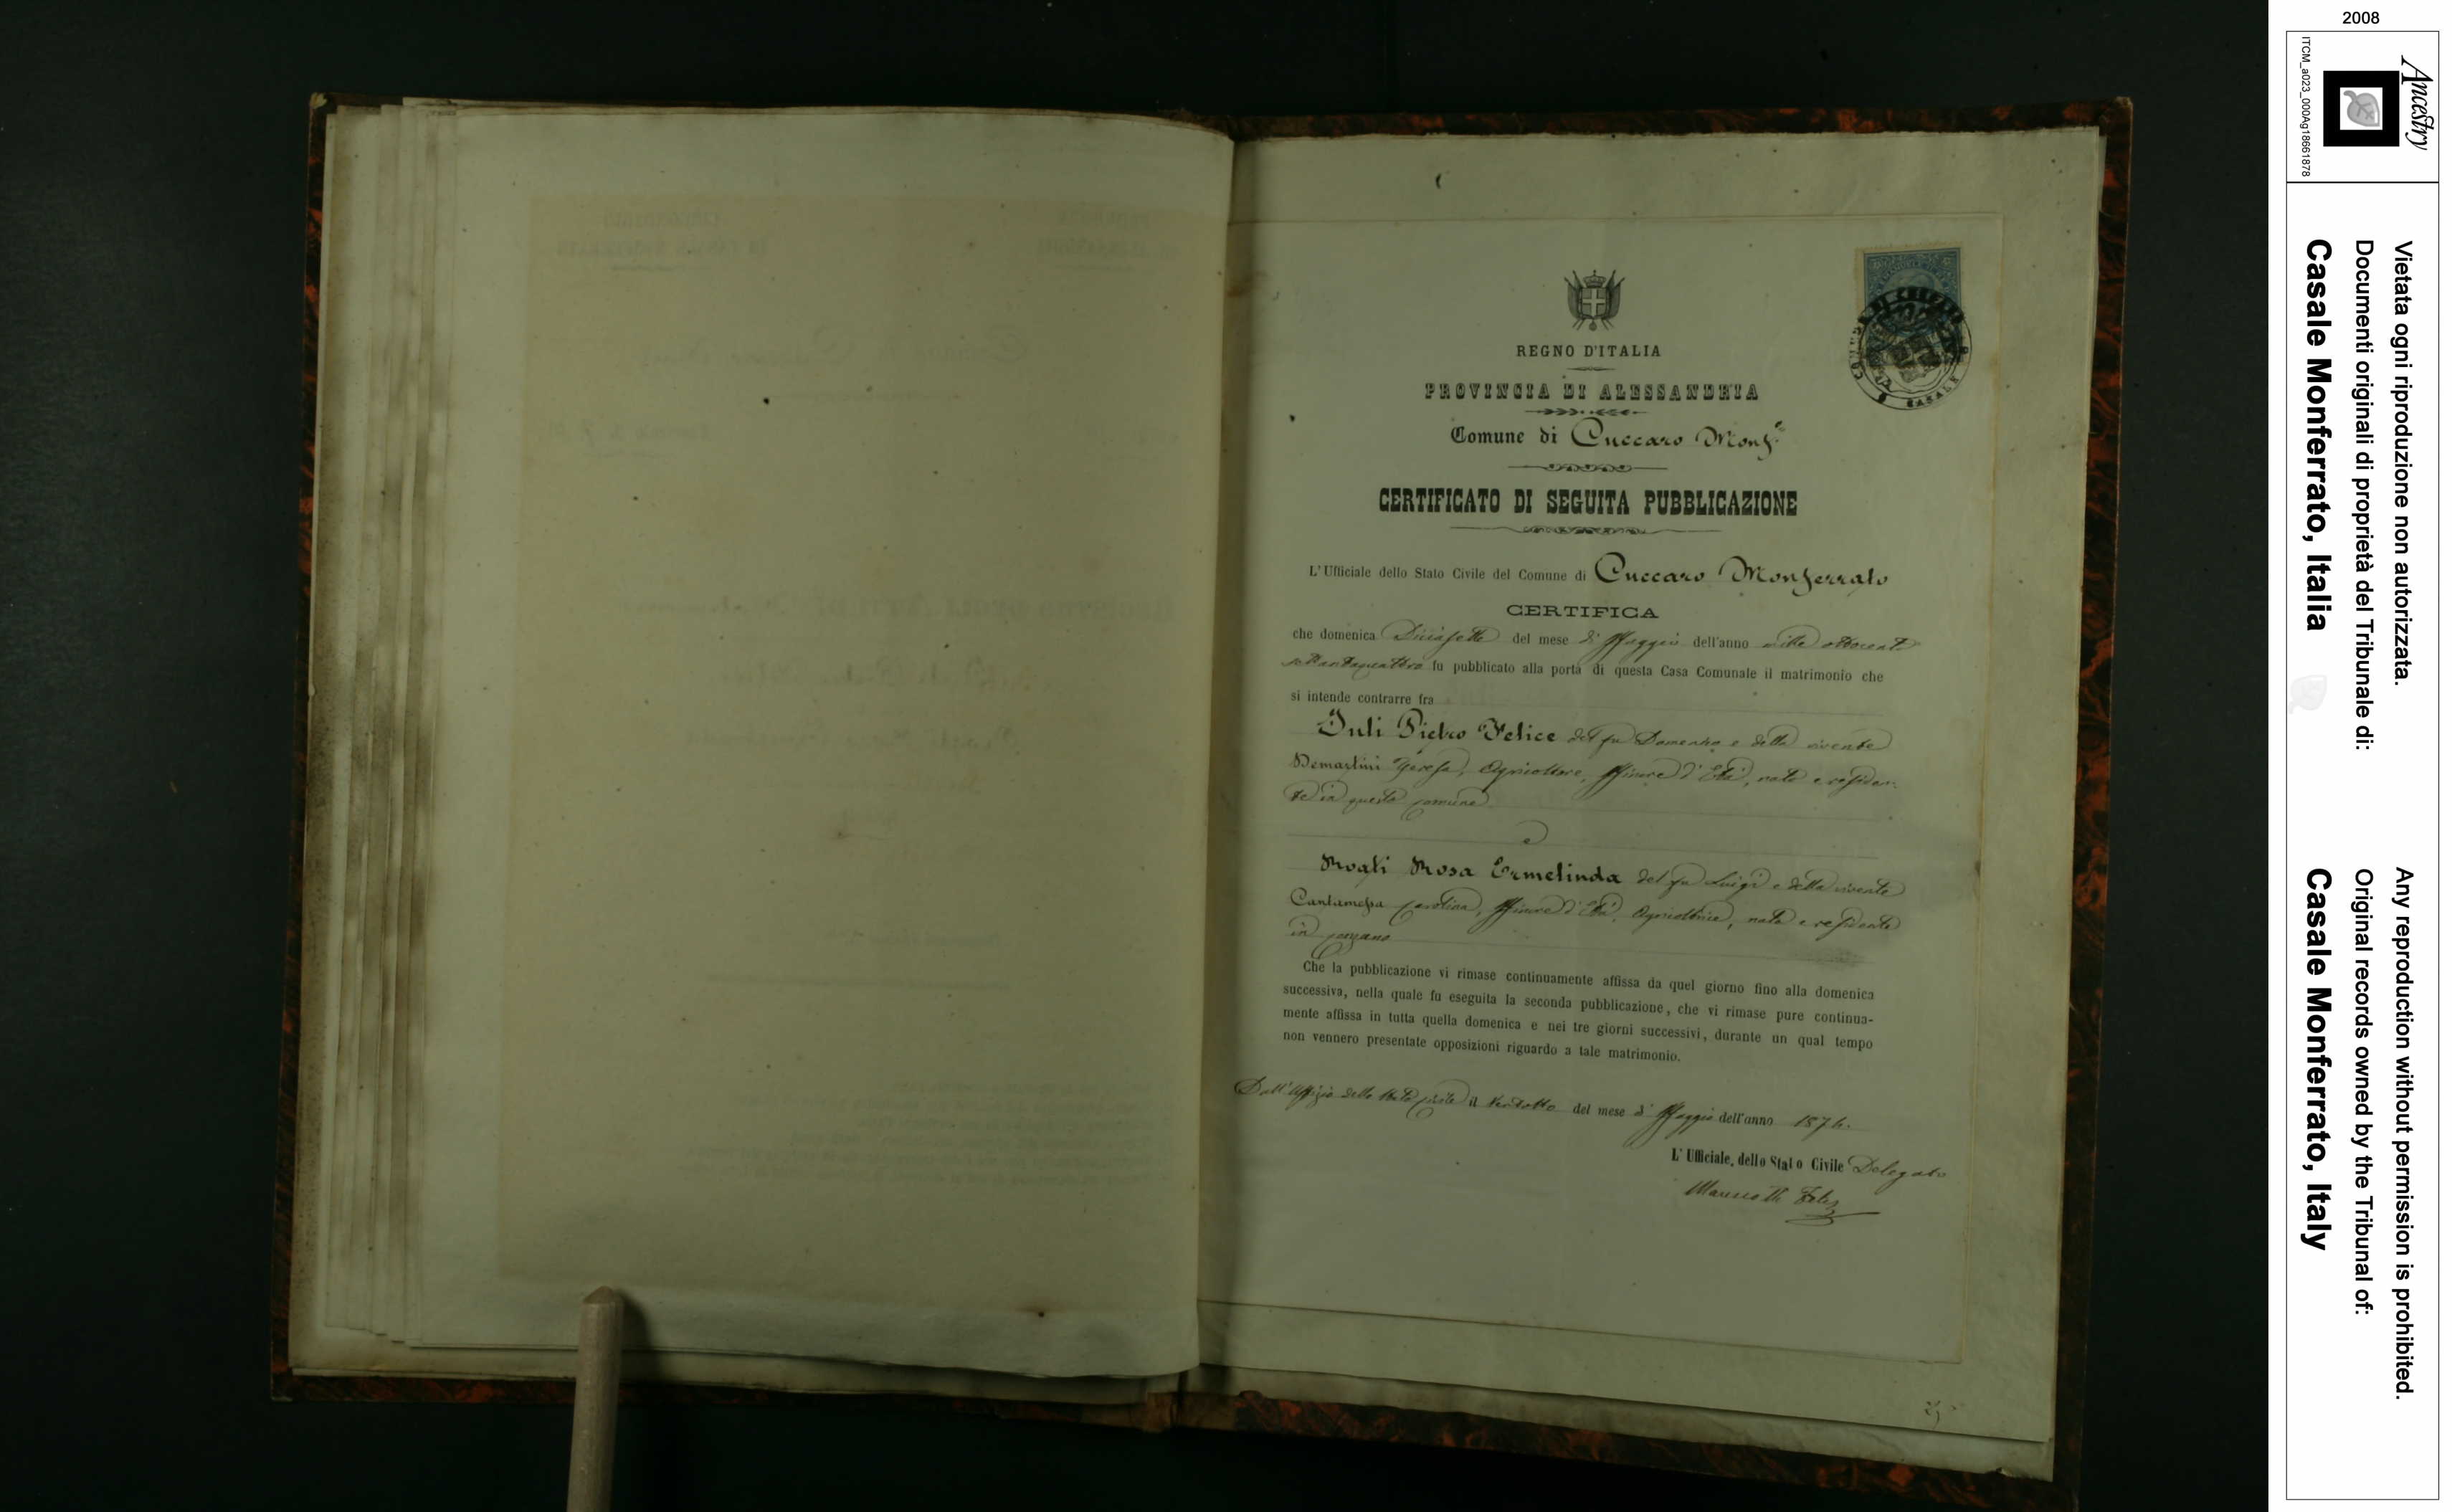 REGNO D'ITALIA
PROVINCIA DI ALESSANDRIA
Comune di Cuccaro Monf.º
CERTIFICATO DI SEGUITA PUBBLICAZIONE
L'Ufficiale dello Stato Civile del Comune di Cuccaro Monferrato
CERTIFICA
che domenica Diciasette del mese di Maggio dell'anno mille ottocento
settantaquattro fu pubblicato alla porta di questa Casa Comunale il matrimonio che
si intende contrarre fra
Pietro Felice del fu Domenico e della vivente
Demartini Teresa, Agricoltore, Minore d'Età, nato e residen-
te in questo comune
e
Rosa Ermelinda del fu Luigi e della vivente
Cantamessa Carolina, Minore d'Età, Agricoltrice, nata e residente
in Conzano
Che la pubblicazione vi rimase continuamente affissa da quel giorno fino alla domenica
successiva, nella quale fu eseguita la seconda pubblicazione, che vi rimase pure continua-
mente affissa in tutta quella domenica e nei tre giorni successivi, durante un qual tempo
non vennero presentate opposizioni riguardo a tale matrimonio.
Dall'Uffizio dello Stato Civile il Ventotto del mese di Maggio dell'anno 1874.
L'Ufficiale dello Stato Civile Delegato
2008
Ancestry
ITCM_a023_000Ag18661878
Vietata ogni riproduzione non autorizzata.
Documenti originali di proprietà del Tribunale di:
Casale Monferrato, Italia
Any reproduction without permission is prohibited.
Original records owned by the Tribunal of:
Casale Monferrato, Italy